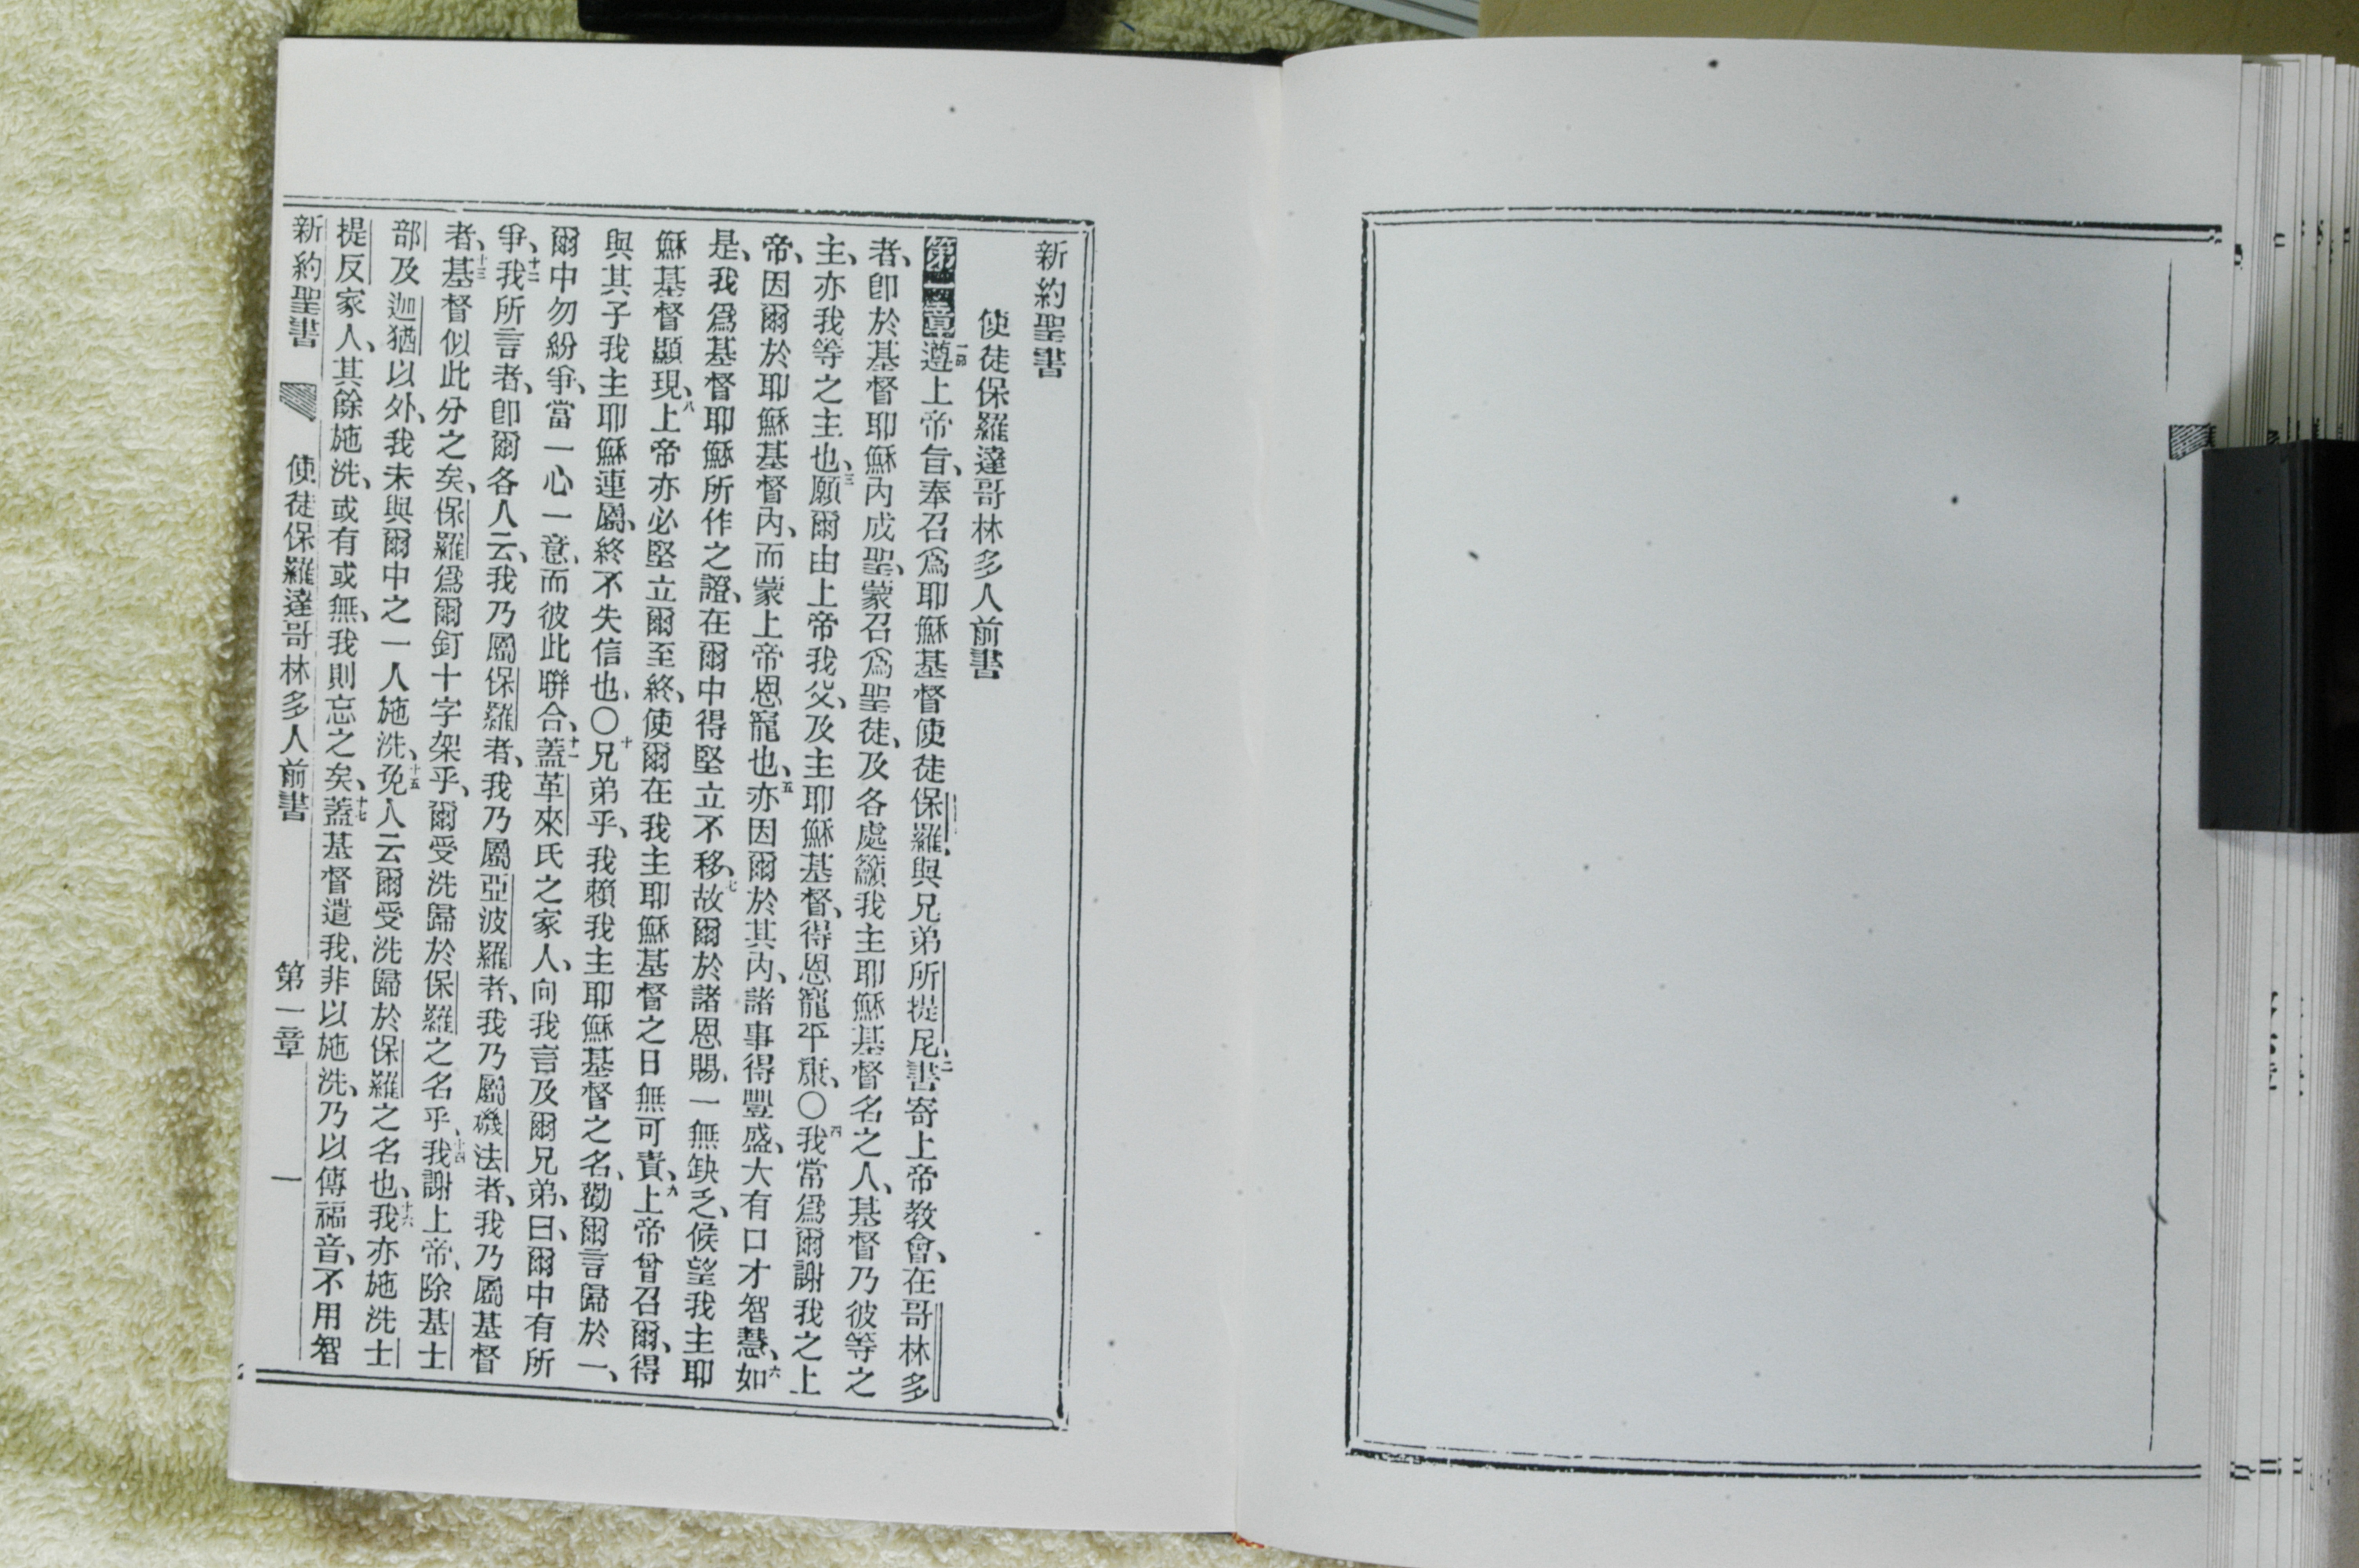 新約聖書
使徒保羅達哥林多人前書
第一章 一遵上帝旨、奉召爲耶穌基督使徒保羅、與兄弟所提尼、二書寄上帝教會、在哥林多
者、卽於基督耶穌內成聖、蒙召爲聖徒、及各處籲我主耶穌基督名之人、基督乃彼等之
主、亦我等之主也、三願爾由上帝我父、及主耶穌基督、得恩寵平康、〇四我常爲爾謝我之上
帝、因爾於耶穌基督內、而蒙上帝恩寵也、五亦因爾於其內、諸事得豐盛、大有口才智慧、六如
是、我爲基督耶穌所作之證、在爾中得堅立不移、七故爾於諸恩賜、一無缺乏、候望我主耶
穌基督顯現、八上帝亦必堅立爾至終、使爾在我主耶穌基督之日無可責、九上帝曾召爾、得
與其子我主耶穌連屬、終不失信也、〇十兄弟乎、我賴我主耶穌基督之名、勸爾言歸於一、
爾中勿紛爭、當一心一意、而彼此聯合、十一蓋革來氏之家人、向我言及爾兄弟、曰、爾中有所
爭、十二我所言者、卽爾各人云、我乃屬保羅者、我乃屬亞波羅者、我乃屬磯法者、我乃屬基督
者、十三基督似此分之矣、保羅爲爾釘十字架乎、爾受洗歸於保羅之名乎、十四我謝上帝、除基士
部及迦猶以外、我未與爾中之一人施洗、十五免人云爾受洗歸於保羅之名也、十六我亦施洗士
提反家人、其餘施洗、或有或無、我則忘之矣、十七蓋基督遣我、非以施洗、乃以傳福音、不用智
新約聖書 使徒保羅達哥林多人前書 第一章 一